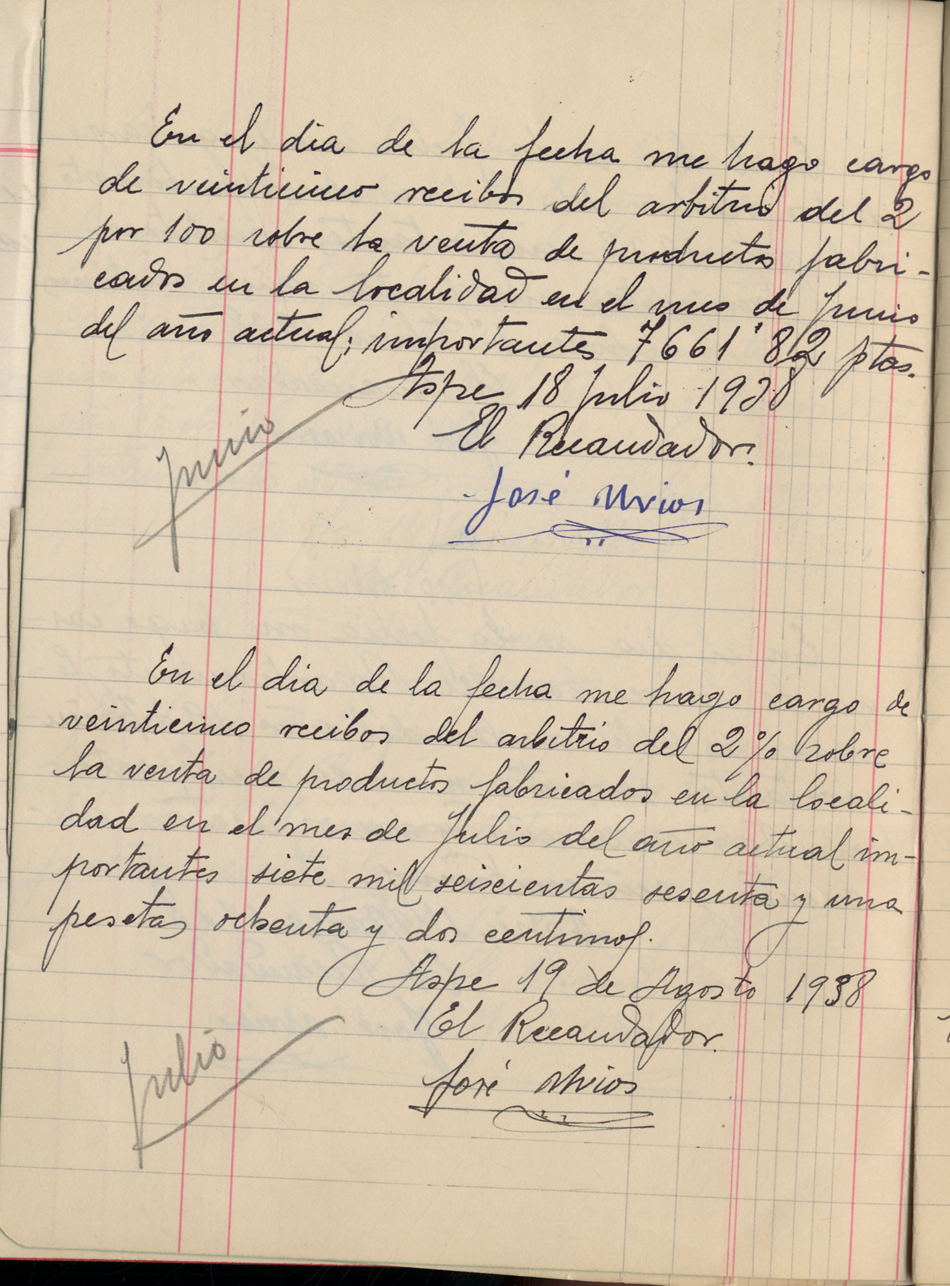 En el dia de la fecha me hago cargo
de veinticinco recibos del arbitrio del 2
por 100 sobre la venta de productos fabri-
cados en la localidad en el mes de Junio
del año actual; importantes 7661'82 ptas.
Aspe 18 Julio 1938
El Recaudador:
José Mvios
Junio
En el dia de la fecha me hago cargo de
veinticinco recibos del arbitrio del 2% sobre
la venta de productos fabricados en la locali-
dad en el mes de Julio del año actual im-
portantes siete mil seiscientas sesenta y una
pesetas ochenta y dos centimos.
Aspe 19 de Agosto 1938
El Recaudador.
José Mvios
Julio